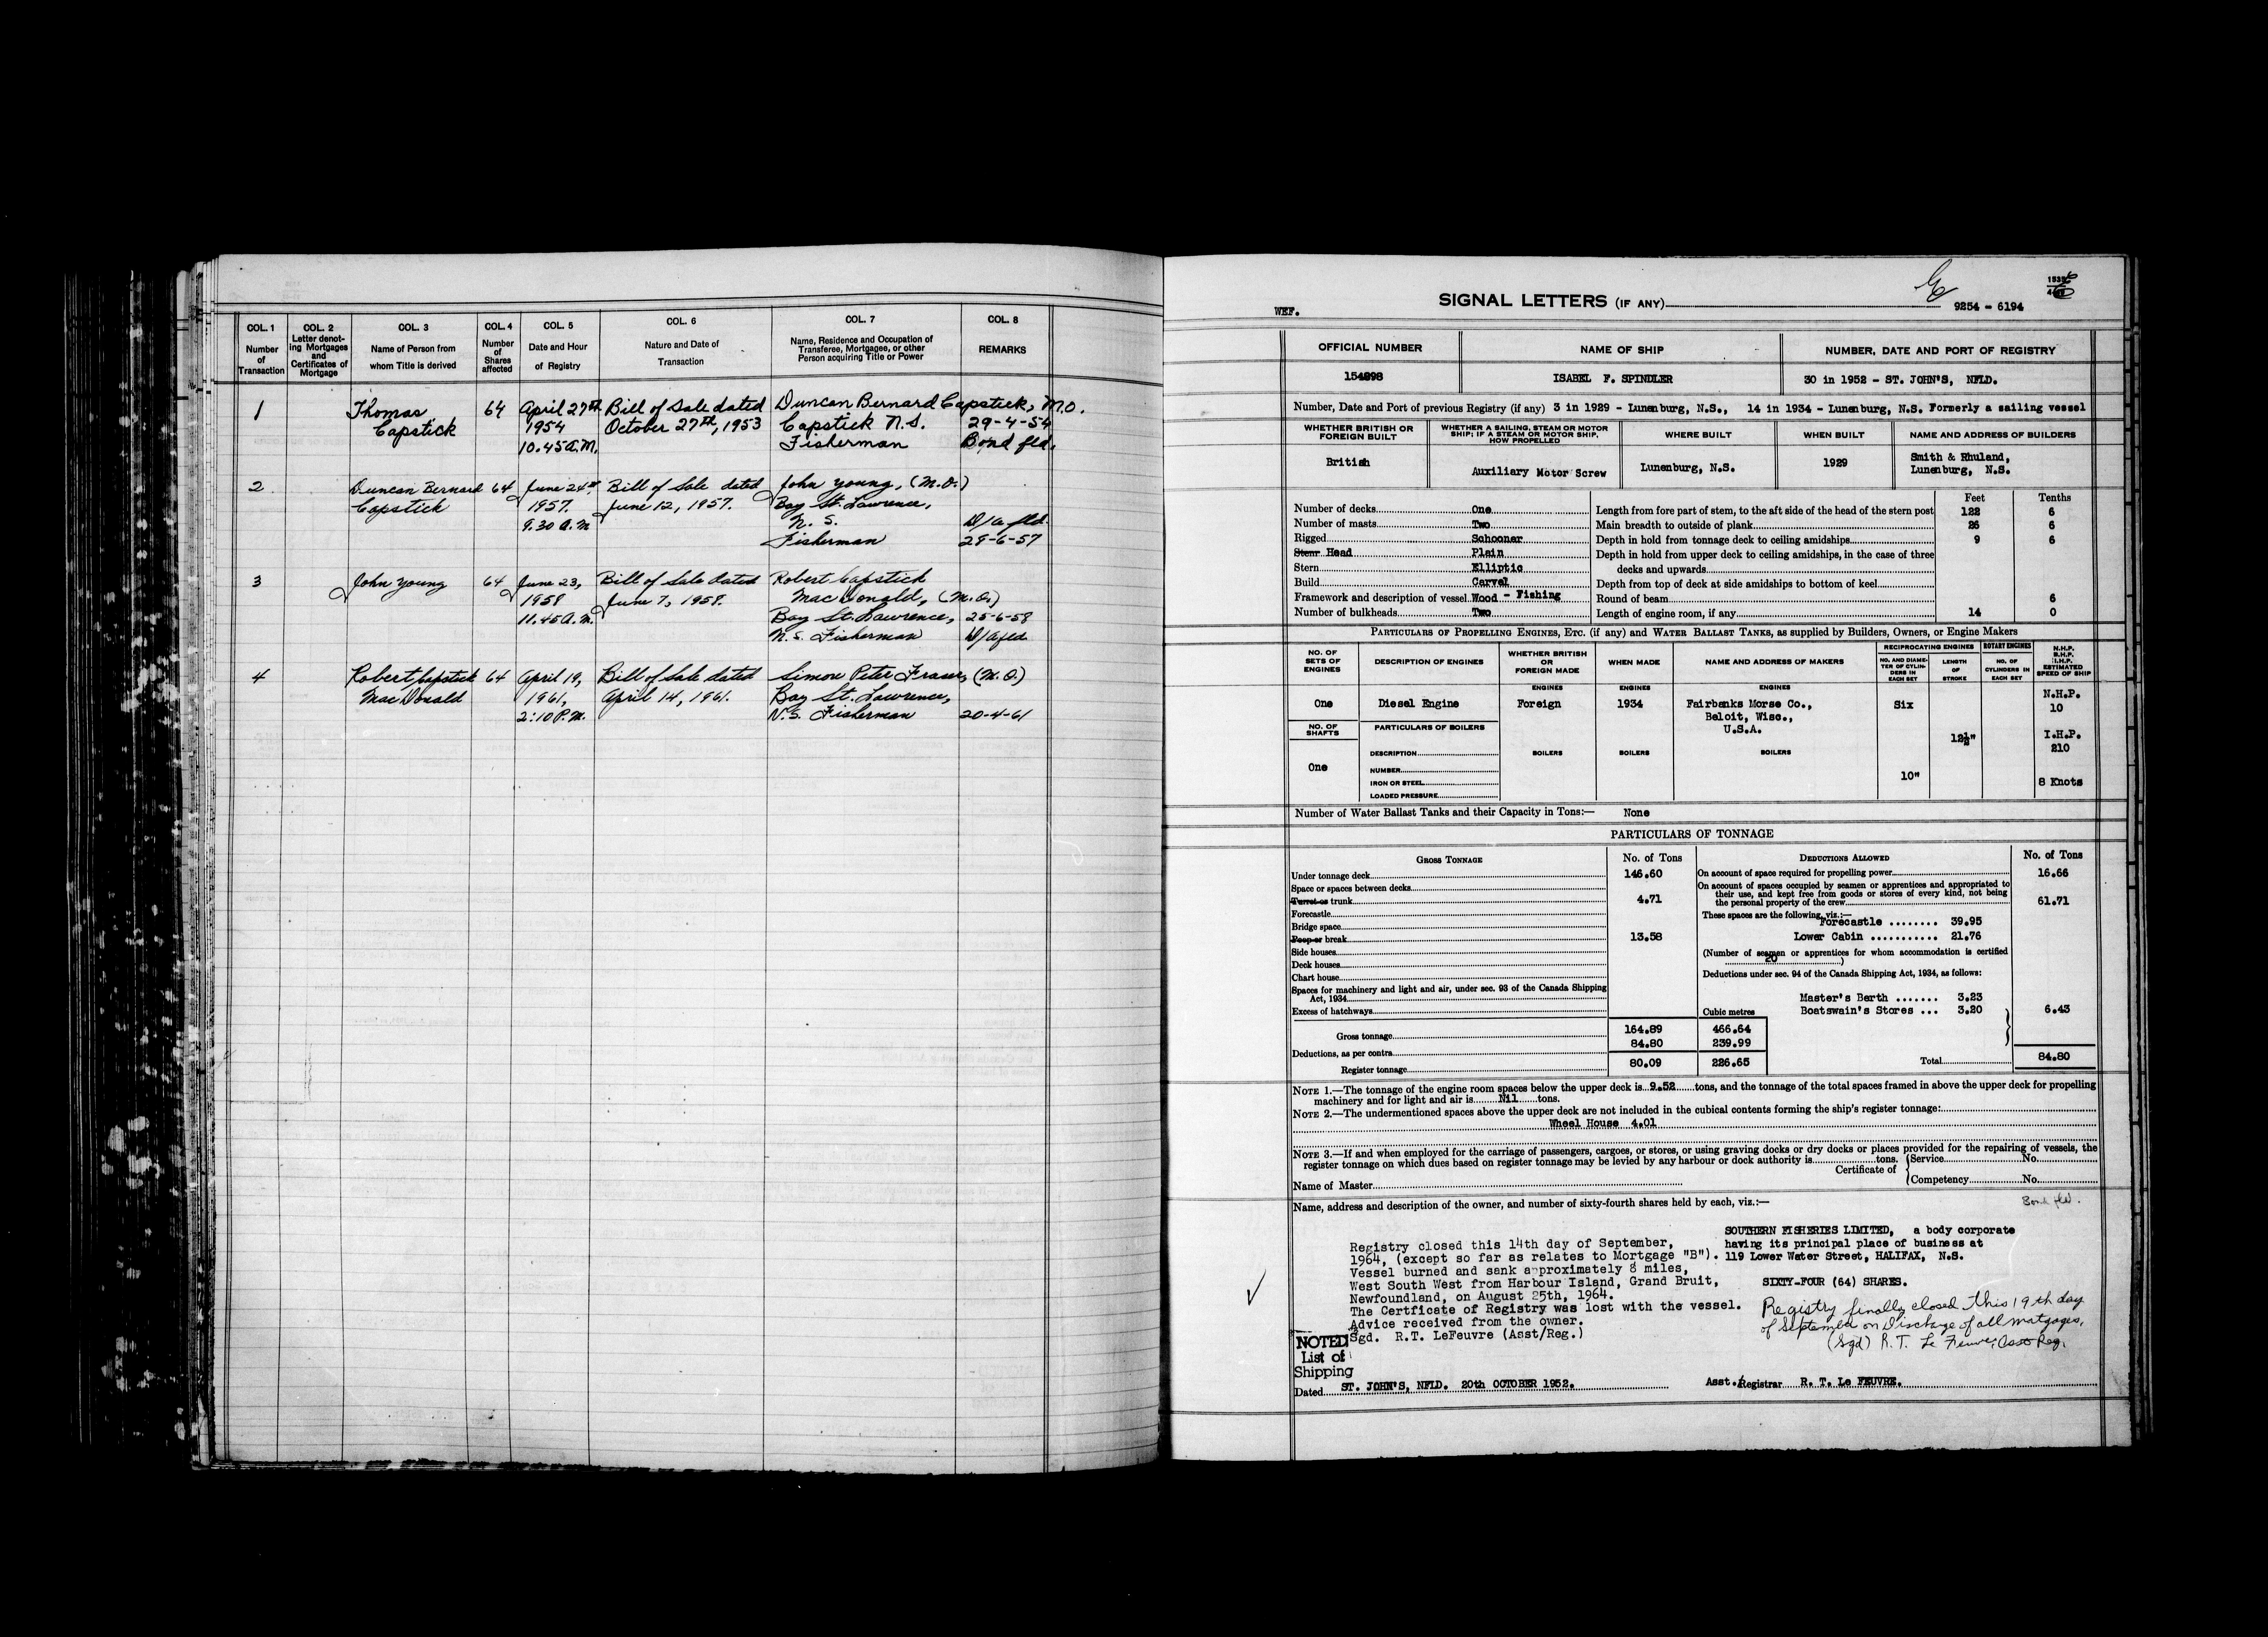 COL. 1 COL. 2 COL. 3 COL. 4 COL. 5 COL. 6 COL. 7 COL. 8
Number of Transaction
Letter denoting Mortgages and Certificates of Mortgage
Name of Person from whom Title is derived
Number of Shares affected
Date and Hour of Registry
Nature and Date of Transaction
Name, Residence and Occupation of Transferee, Mortgagee, or other Person acquiring Title or Power
REMARKS
1 Thomas 64 April 27th Bill of Sale dated Duncan Bernard Capstick, M.O.
Capstick 1954 October 27th, 1953 Capstick N.S. 29-4-54
10.45 A.M. Fisherman Bond fld.
2 Duncan Bernard 64 June 24th Bill of Sale dated John Young, (M.O.)
Capstick 1957. June 12, 1957. Bay St. Lawrence,
9.30 A.M N. S. D/A fld.
Fisherman 29-6-57
3 John Young 64 June 23, Bill of Sale dated Robert Capstick
1958 June 7, 1958. MacDonald, (M.O.)
11.45 A.M. Bay St. Lawrence, 25-6-58
N.S. Fisherman D/A fld
4 Robert Capstick 64 April 19, Bill of Sale dated Simon Peter Fraser, (M.O.)
MacDonald 1961, April 14, 1961. Bay St. Lawrence,
2:10 P.M. N.S. Fisherman 20-4-61
WEF.
SIGNAL LETTERS (IF ANY)
9254 - 6194
OFFICIAL NUMBER NAME OF SHIP NUMBER, DATE AND PORT OF REGISTRY
154898 ISABEL F. SPINDLER 30 in 1952 - ST. JOHN'S, NFLD.
Number, Date and Port of previous Registry (if any) 3 in 1929 - Lunenburg, N.S., 14 in 1934 - Lunenburg, N.S. Formerly a sailing vessel
WHETHER BRITISH OR FOREIGN BUILT
WHETHER A SAILING, STEAM OR MOTOR SHIP; IF A STEAM OR MOTOR SHIP, HOW PROPELLED
WHERE BUILT WHEN BUILT NAME AND ADDRESS OF BUILDERS
British Auxiliary Motor Screw Lunenburg, N.S. 1929 Smith & Rhuland,
Lunenburg, N.S.
Feet Tenths
Number of decks One Length from fore part of stem, to the aft side of the head of the stern post 122 6
Number of masts Two Main breadth to outside of plank 26 6
Rigged Schooner Depth in hold from tonnage deck to ceiling amidships 9 6
Stem Head Plain Depth in hold from upper deck to ceiling amidships, in the case of three
Stern Elliptic decks and upwards
Build Carvel Depth from top of deck at side amidships to bottom of keel
Framework and description of vessel Wood - Fishing Round of beam 6
Number of bulkheads Two Length of engine room, if any 14 0
PARTICULARS OF PROPELLING ENGINES, ETC. (if any) and WATER BALLAST TANKS, as supplied by Builders, Owners, or Engine Makers
NO. OF SETS OF ENGINES
DESCRIPTION OF ENGINES
WHETHER BRITISH OR FOREIGN MADE
WHEN MADE
NAME AND ADDRESS OF MAKERS
RECIPROCATING ENGINES ROTARY ENGINES
NO. AND DIAMETER OF CYLINDERS IN EACH SET
LENGTH OF STROKE
NO. OF CYLINDERS IN EACH SET
N.H.P. B.H.P. I.H.P. ESTIMATED SPEED OF SHIP
ENGINES ENGINES ENGINES
One Diesel Engine Foreign 1934 Fairbanks Morse Co., Six N.H.P.
Beloit, Wisc., 10
U.S.A.
NO. OF SHAFTS PARTICULARS OF BOILERS
12½" I.H.P.
210
DESCRIPTION BOILERS BOILERS BOILERS
One NUMBER
10"
IRON OR STEEL 8 Knots
LOADED PRESSURE
Number of Water Ballast Tanks and their Capacity in Tons:— None
PARTICULARS OF TONNAGE
GROSS TONNAGE No. of Tons DEDUCTIONS ALLOWED No. of Tons
Under tonnage deck 146.60 On account of space required for propelling power 16.66
Space or spaces between decks On account of spaces occupied by seamen or apprentices and appropriated to
Turret or trunk 4.71 their use, and kept free from goods or stores of every kind, not being
the personal property of the crew 61.71
Forecastle These spaces are the following, viz.:—
Bridge space Forecastle ........ 39.95
Poop or break 13.58 Lower Cabin ........... 21.76
Side houses (Number of seamen or apprentices for whom accommodation is certified
Deck houses 20 )
Chart house Deductions under sec. 94 of the Canada Shipping Act, 1934, as follows:
Spaces for machinery and light and air, under sec. 93 of the Canada Shipping
Act, 1934 Master's Berth ....... 3.23
Excess of hatchways Cubic metres Boatswain's Stores ... 3.20 6.43
Gross tonnage 164.89 466.64
Deductions, as per contra 84.80 239.99
Register tonnage 80.09 226.65 Total 84.80
NOTE 1.—The tonnage of the engine room spaces below the upper deck is 9.52 tons, and the tonnage of the total spaces framed in above the upper deck for propelling
machinery and for light and air is Nil tons.
NOTE 2.—The undermentioned spaces above the upper deck are not included in the cubical contents forming the ship's register tonnage:
Wheel House 4.01
NOTE 3.—If and when employed for the carriage of passengers, cargoes, or stores, or using graving docks or dry docks or places provided for the repairing of vessels, the
register tonnage on which dues based on register tonnage may be levied by any harbour or dock authority is tons.
Certificate of Service No.
Competency No.
Name of Master
Name, address and description of the owner, and number of sixty-fourth shares held by each, viz.:—
Bond fld.
SOUTHERN FISHERIES LIMITED, a body corporate
having its principal place of business at
119 Lower Water Street, HALIFAX, N.S.
SIXTY-FOUR (64) SHARES.
Registry closed this 14th day of September,
1964, (except so far as relates to Mortgage "B").
Vessel burned and sank approximately 8 miles,
West South West from Harbour Island, Grand Bruit,
Newfoundland, on August 25th, 1964.
The Certficate of Registry was lost with the vessel.
Advice received from the owner.
Sgd. R.T. LeFeuvre (Asst/Reg.)
Registry finally closed this 19th day
of September on Discharge of all matgages,
(sgd) R. T. Le Feuvre, Asst Reg.
NOTED
List of
Shipping
Dated ST. JOHN'S, NFLD. 20th OCTOBER 1952. Asst./Registrar R. T. Le FEUVRE.